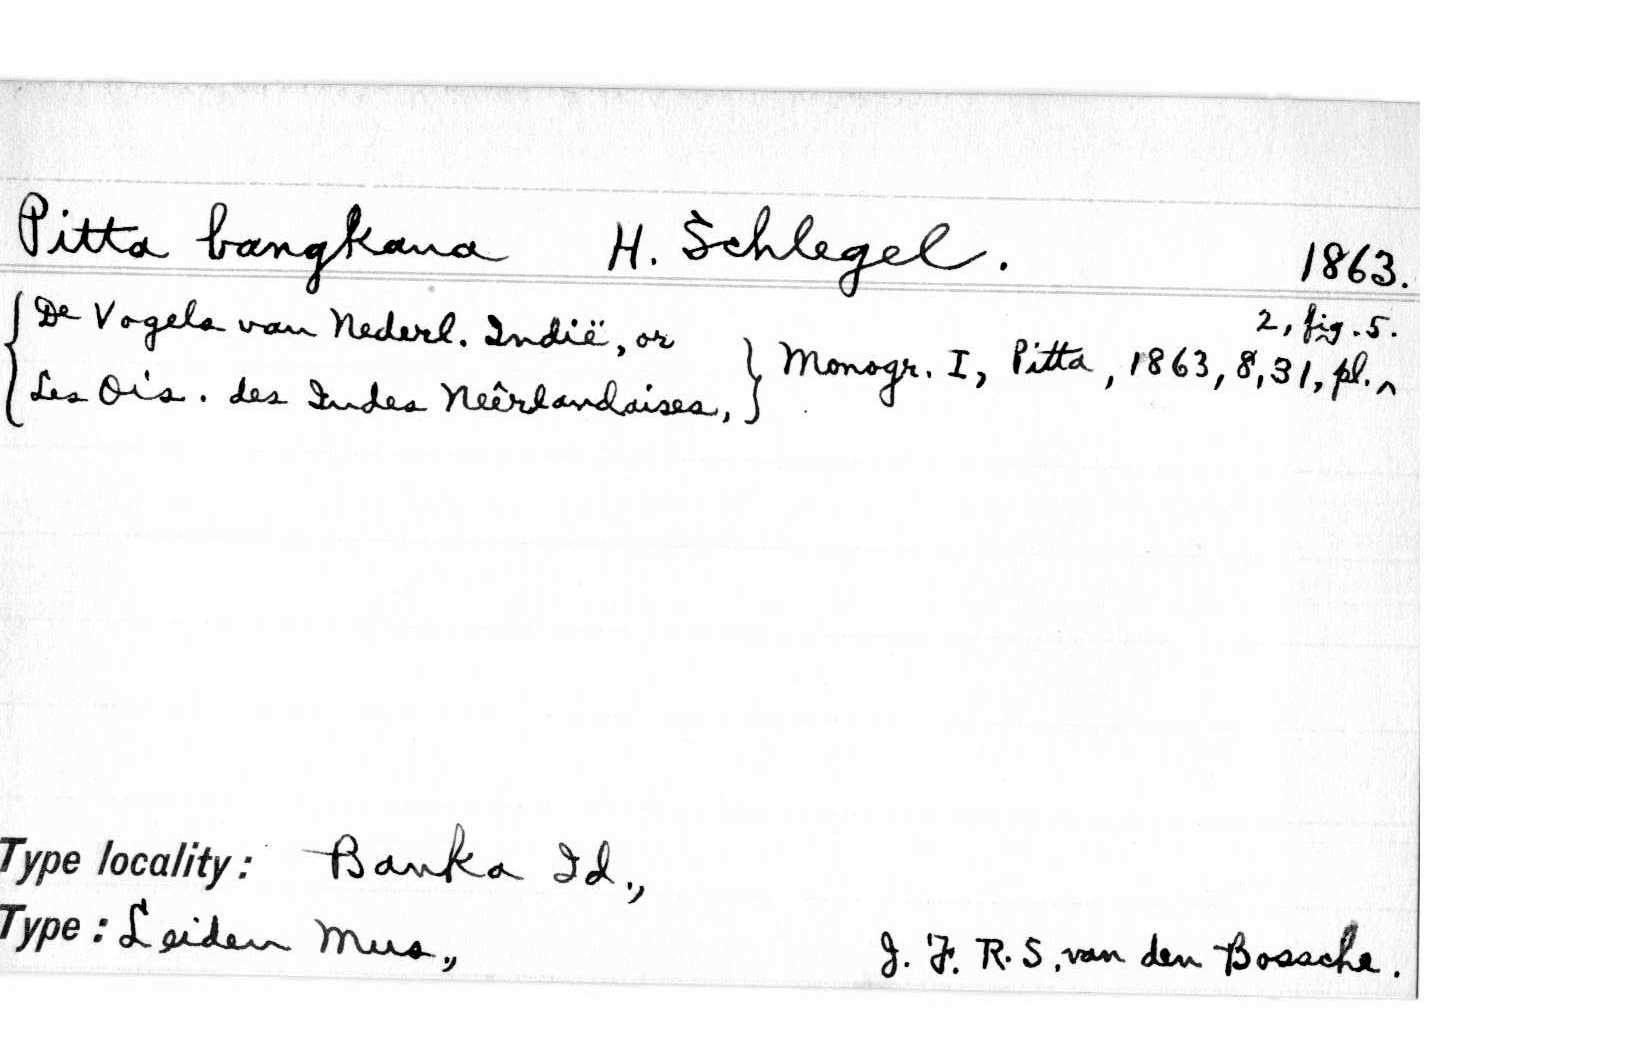 Pitta bangkana H. Schlegel. 1863.
{De Vogels van Nederl. Indië, or
Les Ois. des Indes Neêrlandaises,} Monogr. I, Pitta, 1863, 8, 31, pl. ^ 2, fig. 5.
Type locality: Banka Id.,
Type: Leiden Mus., J. F. R. S. van den Bossche.